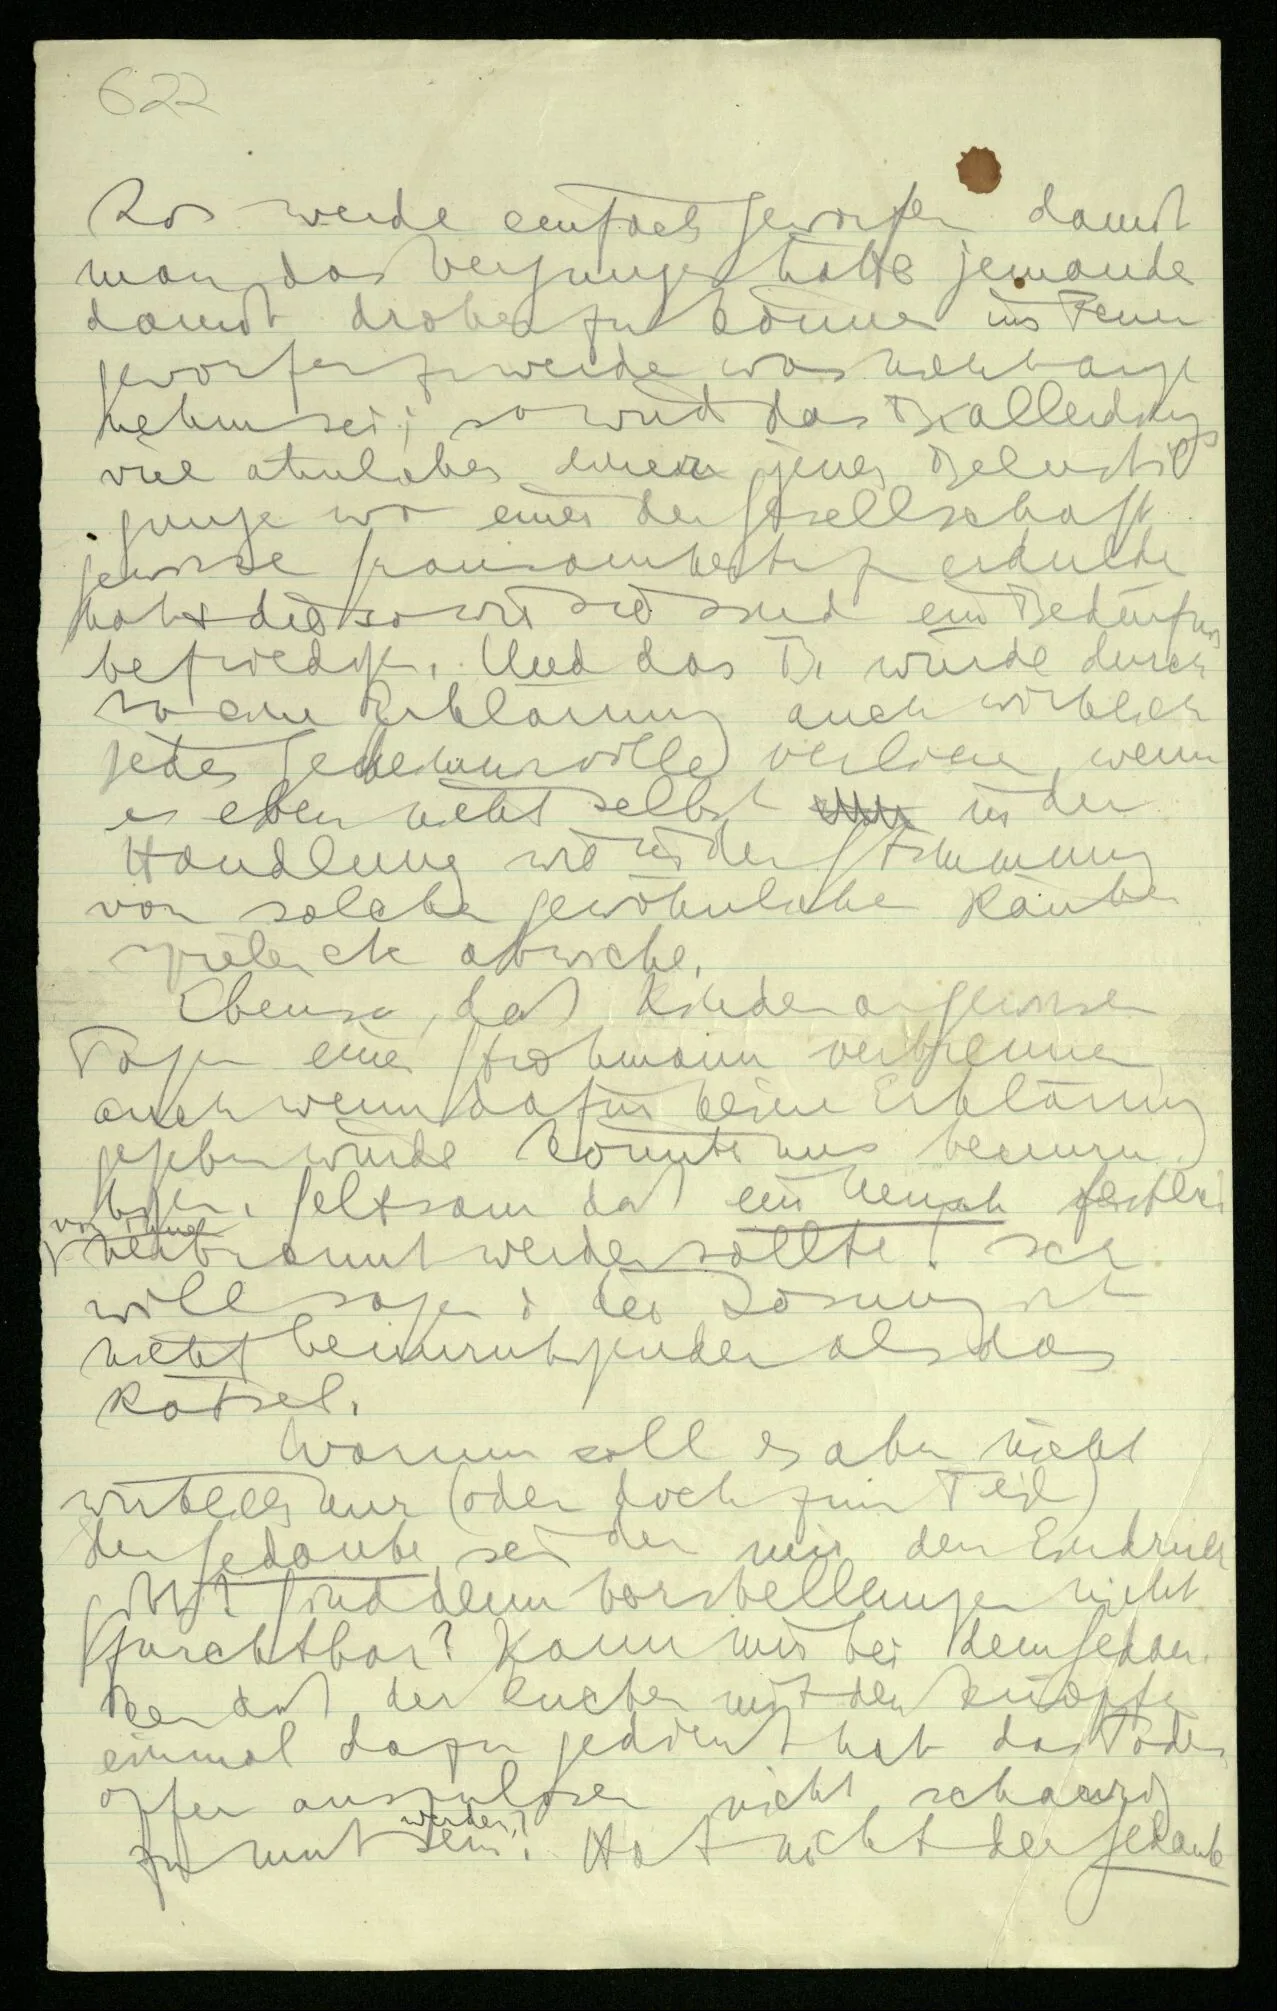 622
Los werde einfach geworfen damit
man das Vergnügen hätte jemandem
damit drohen zu können ins Feuer
geworfen zu werden was nicht ange
nehm sei; so wird das B. allerdings
viel ähnlicher einer jener Belusti
gungen wo einer der Gesellschaft
gewisse Grausamkeiten zu erdulden
hat & die so wie sie sind ein Bedürfnis
befriedigen. Und das B. würde durch
so eine Erklärung auch wirklich
jedes Geheimnisvolle verlieren, wenn
es eben nicht selbst in der
Handlung wie in der Stimmung
von solchen gewöhnlichen Räuber
spielen etc abwiche.
Ebenso, daß Kinder an gewissen
Tagen einen Strohmann verbrennen
auch wenn dafür keine Erklärung
gegeben würde könnte uns beunru
higen. Seltsam daß ein Mensch festlich
von ihnen
verbrannt werden sollte! Ich
will sagen: die Lösung ist
nicht beunruhigender als das
Rätsel.
Warum soll es aber nicht
wirklich nur (oder doch zum Teil)
der Gedanke sein der mir den Eindruck
gibt? Sind denn Vorstellungen nicht
furchtbar? Kann mir bei dem Gedan
ken daß der Kuchen mit den Knöpfen
einmal dazu gedient hat das Todes
opfer auszulosen nicht schaurig
werden?
zu mut sein? Hat nicht der Gedanke